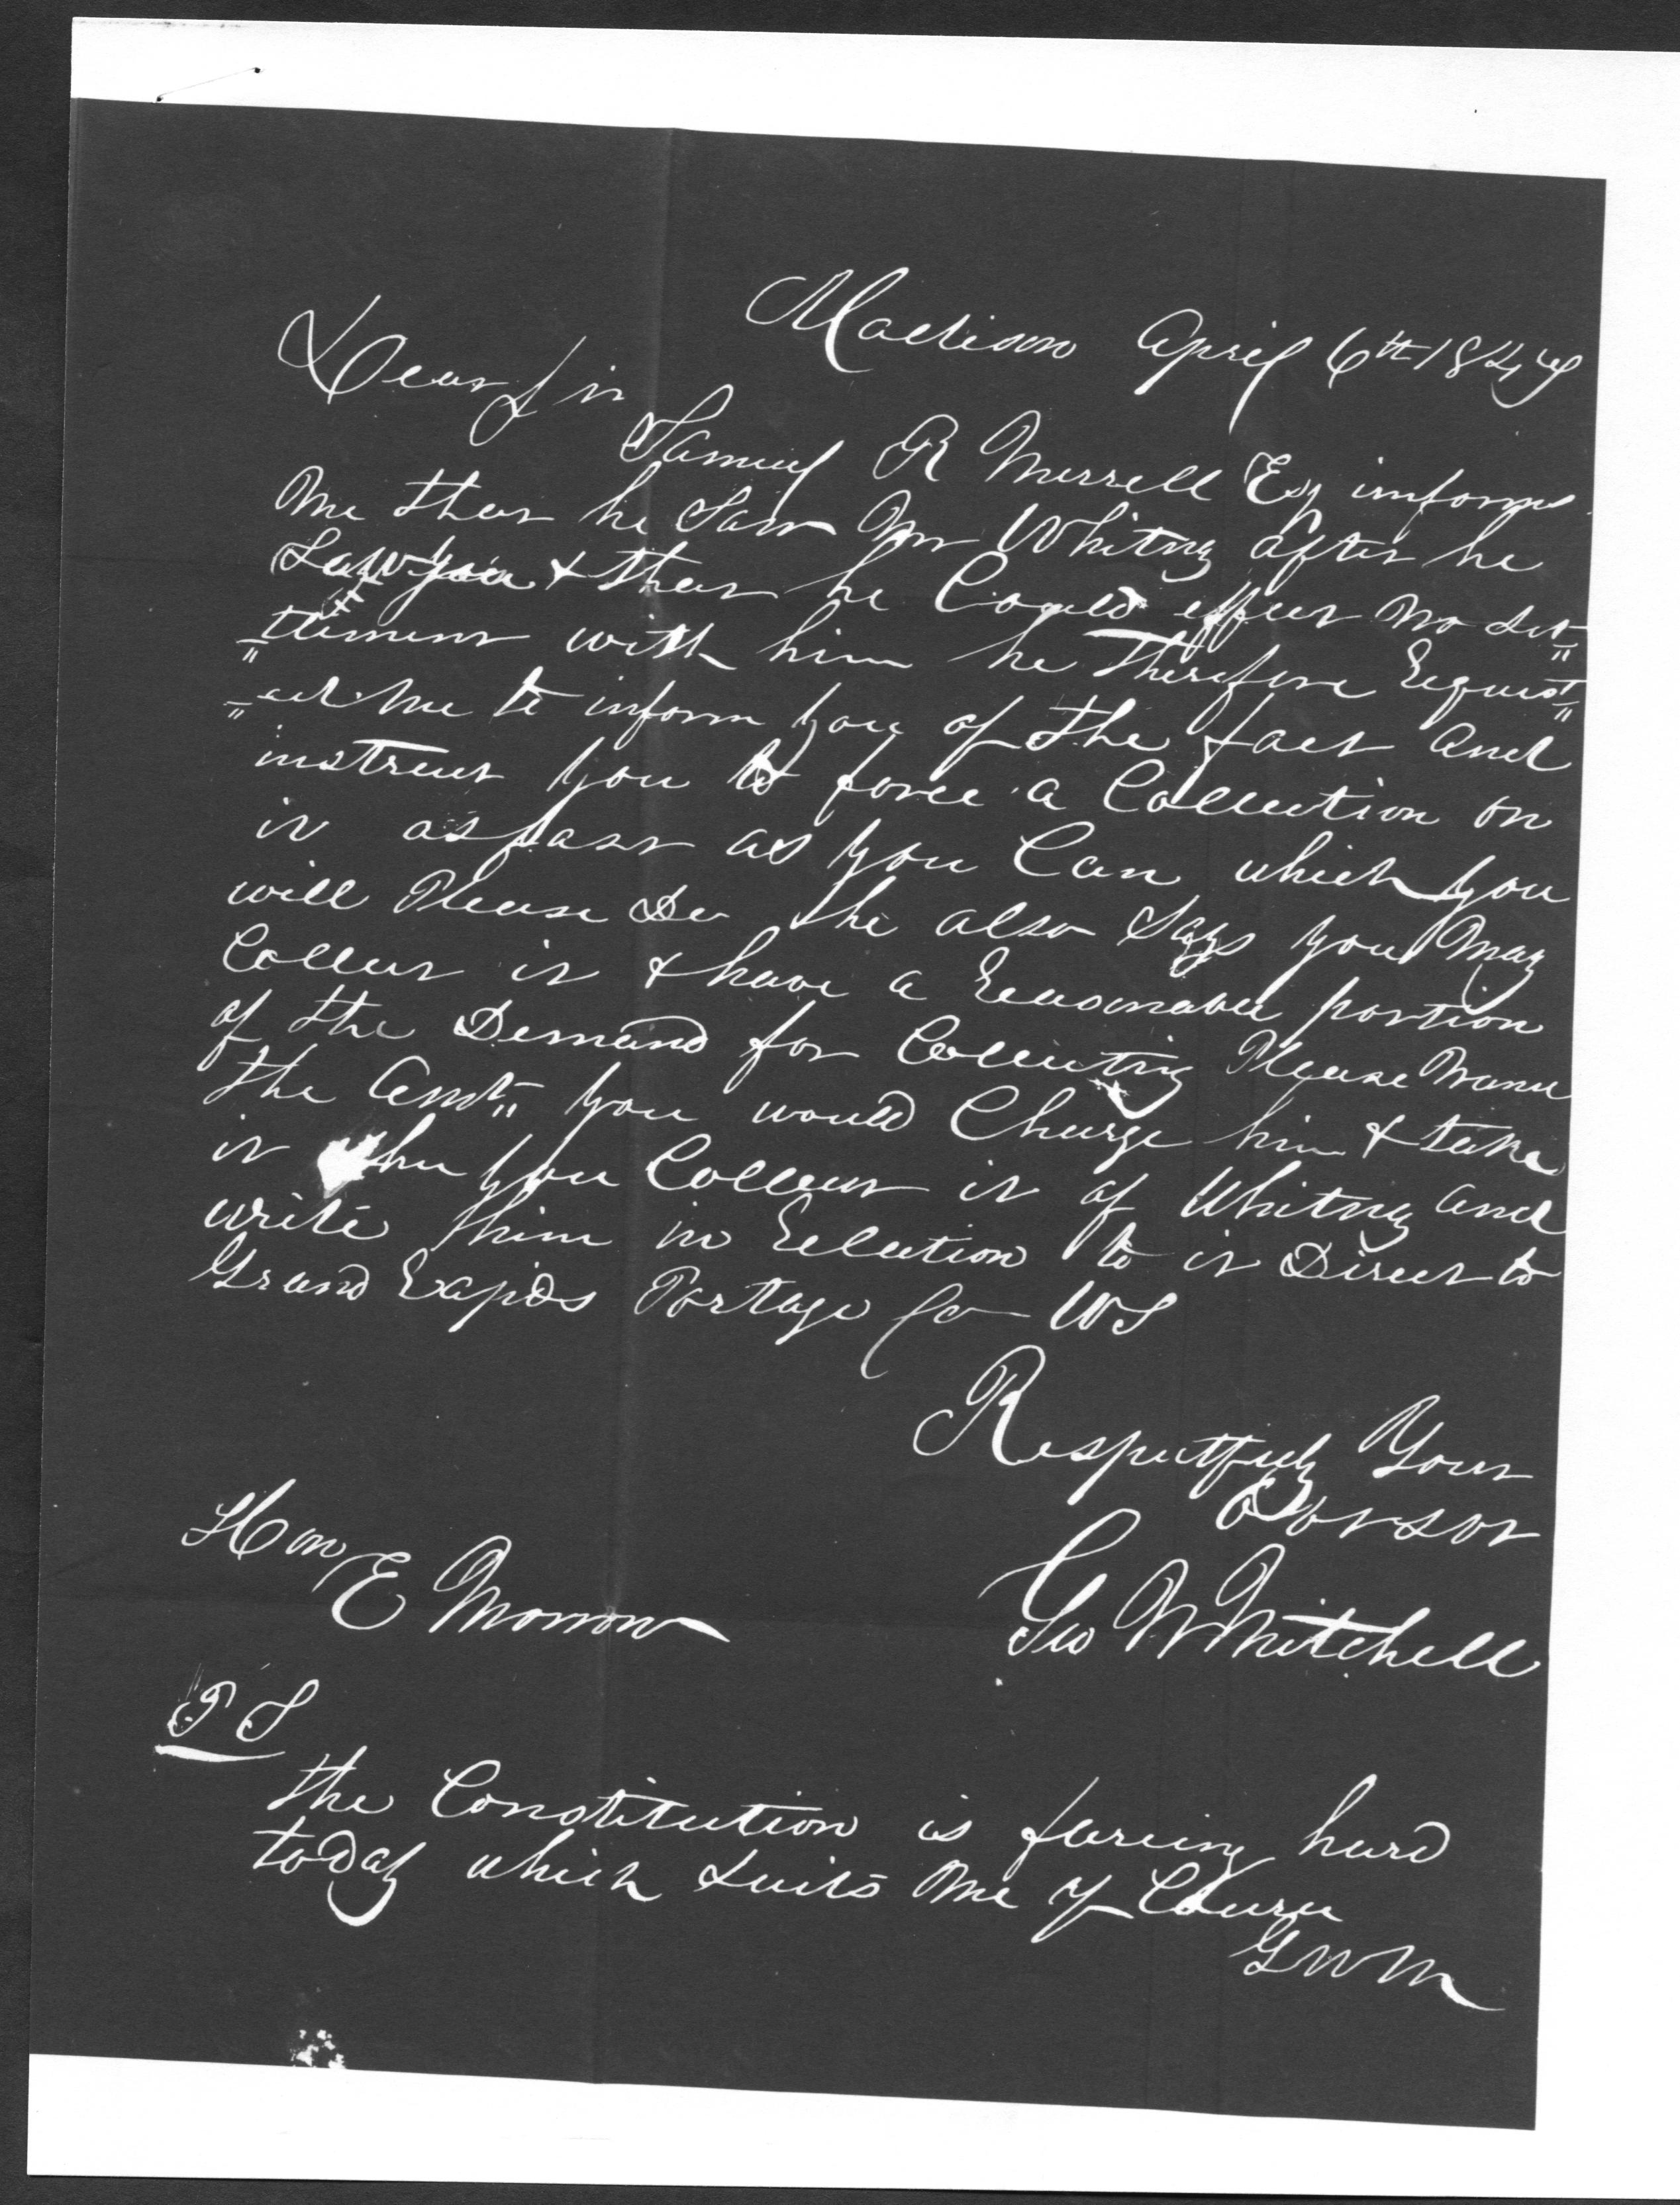 Madison April 6th 184
Dear Sir
Samuel R Murrell Esq imforms
me that he Saw Mr Whitny after he
Saw you & that he Could effect no set=
=tlement with him he therefore Request=
=ed me to inform you of the fact and
instruct you to force a Collection on
it as fast as you Can which you
will Please Do he also Says you may
Collect it & have a Reasonable portion
of the Demand for Collecting Please Name
the Amt" you would Charge him & take
it when you Collect it of Whitny and
write him in Relation to it Direct to
Grand Rapids Portage Co WS
Respectfuly Your
Obt
Geo W Mitchell
Hon E Morrow
P S
the Constitution is fareing hard
today which suits me of Course
GWM